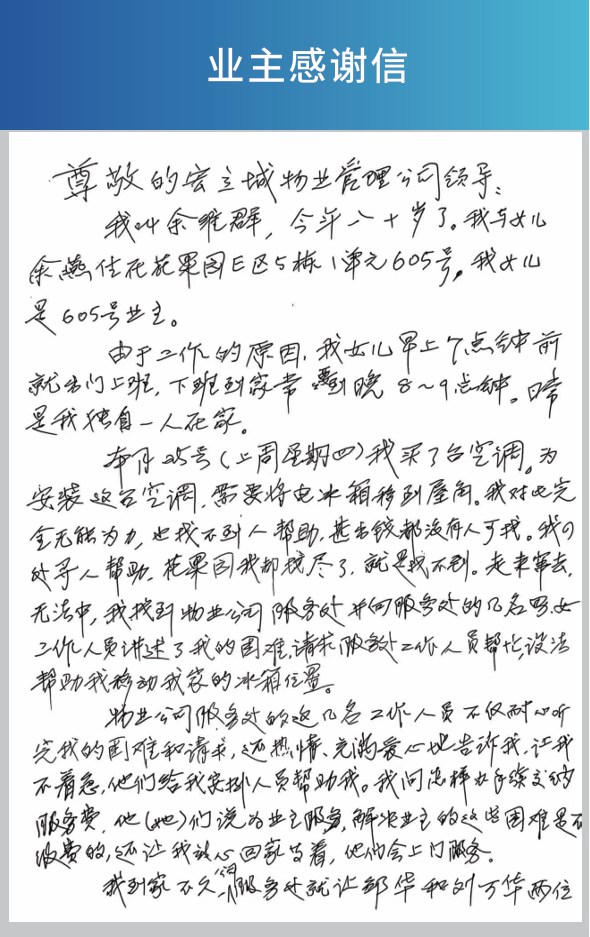 业主感谢信
尊敬的宏立城物业管理公司领导：
我叫余维群，今年八十岁了。我与女儿
余燕住在花果园E区5栋1单元605号，我女儿
是605号业主。
由于工作的原因，我女儿早上7点钟前
就出门上班，下班到家常要到晚8～9点钟。日常
是我独自一人在家。
本月25号（上周星期四）我买了台空调。为
安装这台空调，需要将电冰箱移到屋角。我对此完
全无能为力，也找不到人帮助，甚出钱都没有人可找。我
处寻人帮助，花果园我都找尽了，就是找不到。走来窜去，
无法中，我找到物业公司服务处并向服务处的几名男女
工作人员讲述了我的困难，请求服务处工作人员帮忙设法
帮助我移动我家的冰箱位置。
物业公司服务处的这几名工作人员不仅耐心听
完我的困难和请求，还热情、充满爱心地告诉我，让我
不着急，他们给我安排人员帮助我。我问怎样办手续交纳
服务费，他（她）们说为业主服务，解决业主的这些困难是不
收费的，还让我放心回家等着，他们会上门服务。
我到家不久，服务处就让邹华和刘万华两位